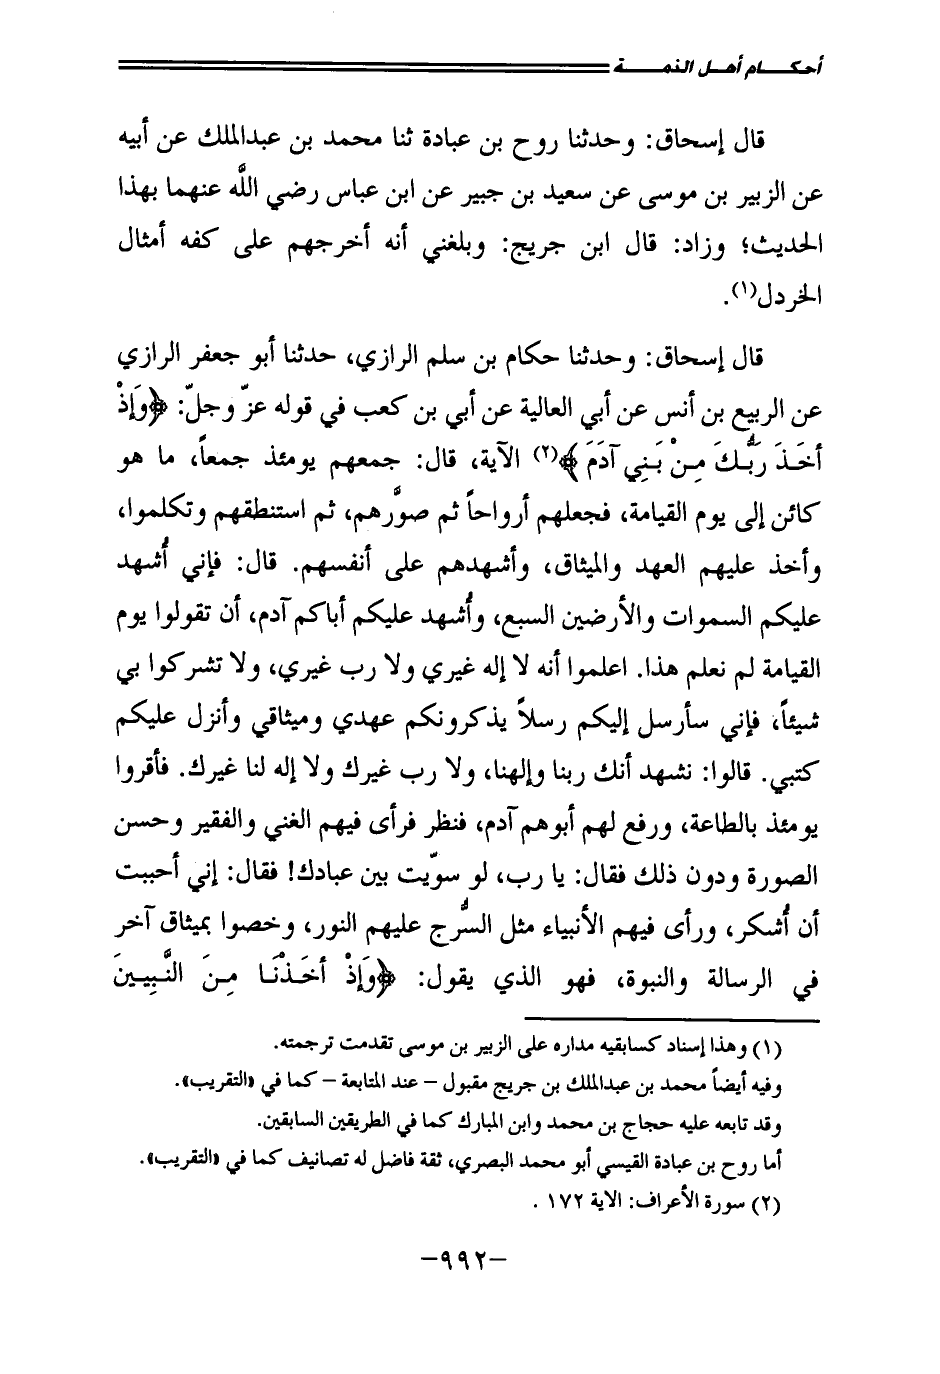 أحكـــام أهـل الذمـــة
قال إسحاق: وحدثنا روح بن عبادة ثنا محمد بن عبدالملك عن أبيه
عن الزبير بن موسى عن سعيد بن جبير عن ابن عباس رضي اللَّه عنهما بهذا
الحديث؛ وزاد: قال ابن جريج: وبلغني أنه أخرجهم على كفه أمثال
الخردل(١).
قال إسحاق: وحدثنا حكام بن سلم الرازي، حدثنا أبو جعفر الرازي
عن الربيع بن أنس عن أبي العالية عن أبي بن كعب في قوله عزّ وجلّ: ﴿وَإِذْ
أَخَذَ رَبُّكَ مِنْ بَنِي آدَمَ﴾(٢) الآية، قال: جمعهم يومئذ جمعاً، ما هو
كائن إلى يوم القيامة، فجعلهم أرواحاً ثم صوَّرهم، ثم استنطقهم وتكلموا،
وأخذ عليهم العهد والميثاق، وأشهدهم على أنفسهم. قال: فإني أُشهد
عليكم السموات والأرضين السبع، وأُشهد عليكم أباكم آدم، أن تقولوا يوم
القيامة لم نعلم هذا. اعلموا أنه لا إله غيري ولا رب غيري، ولا تشركوا بي
شيئاً، فإني سأرسل إليكم رسلاً يذكرونكم عهدي وميثاقي وأنزل عليكم
كتبي. قالوا: نشهد أنك ربنا وإلهنا، ولا رب غيرك ولا إله لنا غيرك. فأقروا
يومئذ بالطاعة، ورفع لهم أبوهم آدم، فنظر فرأى فيهم الغني والفقير وحسن
الصورة ودون ذلك فقال: يا رب، لو سوّيت بين عبادك! فقال: إني أحببت
أن أُشكر، ورأى فيهم الأنبياء مثل السُّرج عليهم النور، وخصوا بميثاق آخر
في الرسالة والنبوة، فهو الذي يقول: ﴿وَإِذْ أَخَذْنَا مِنَ النَّبِيـينَ
(١) وهذا إسناد كسابقيه مداره على الزبير بن موسى تقدمت ترجمته.
وفيه أيضاً محمد بن عبدالملك بن جريج مقبول – عند المتابعة – كما في «التقريب».
وقد تابعه عليه حجاج بن محمد وابن المبارك كما في الطريقين السابقين.
أما روح بن عبادة القيسي أبو محمد البصري، ثقة فاضل له تصانيف كما في «التقريب».
(٢) سورة الأعراف: الاية ١٧٢ .
–٩٩٢–